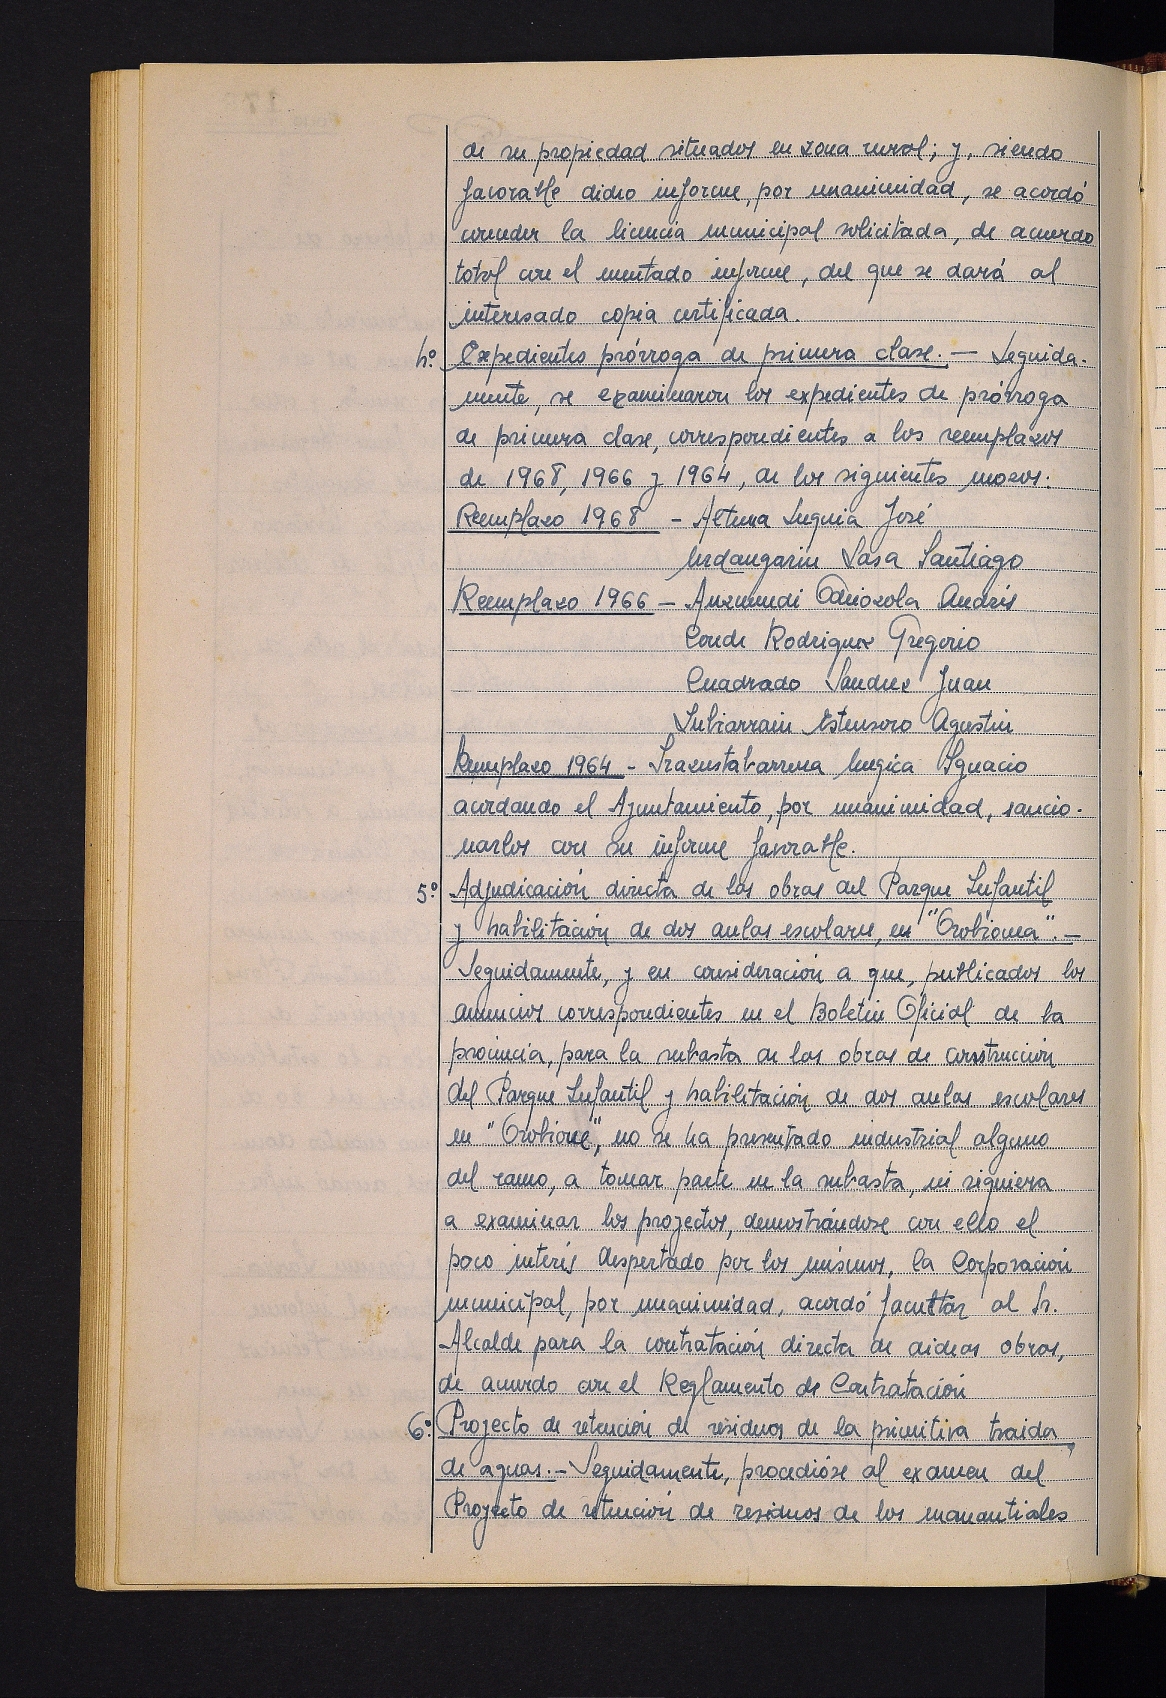 de su propiedad situados en zona rural; y, siendo
favorable dicho informe, por unanimidad, se acordó
conceder la licencia municipal solicitada, de acuerdo
total con el mentado informe, del que se dará al
interesado copia certificada.
4º. Expedientes prórroga de primera clase. — Seguida-
mente, se examinaron los expedientes de prórroga
de primera clase, correspondientes a los reemplazos
de 1968, 1966 y 1964, de los siguientes mozos:
Reemplazo 1968 - Altuna Inguia José
Urdangarin Sasa Santiago
Reemplazo 1966 — Auzmendi Odriozola Andrés
Conde Rodriguez Gregorio
Cuadrado Sanchez Juan
Zubiarrain Estensoro Agustin
Reemplazo 1964 - Irazustabarrena Mugica Ignacio
acordando el Ayuntamiento, por unanimidad, sancio-
narlos con su informe favorable.
5º Adjudicación directa de las obras del Parque Infantil
y habilitación de dos aulas escolares, en "Orobione". —
Seguidamente, y en consideración a que, publicados los
anuncios correspondientes en el Boletin Oficial de la
provincia, para la subasta de las obras de construcción
del Parque Infantil y habilitación de dos aulas escolares
en "Orobione", no se ha presentado industrial alguno
del ramo, a tomar parte en la subasta, ni siquiera
a examinar los proyectos, demostrándose con ello el
poco interés despertado por los mismos, la Corporación
municipal, por unanimidad, acordó facultar al Sr.
Alcalde para la contratación directa de dichas obras,
de acuerdo con el Reglamento de Contratación
6º. Proyecto de retención de residuos de la primitiva traida
de aguas. — Seguidamente, procedióse al examen del
Proyecto de retención de residuos de los manantiales